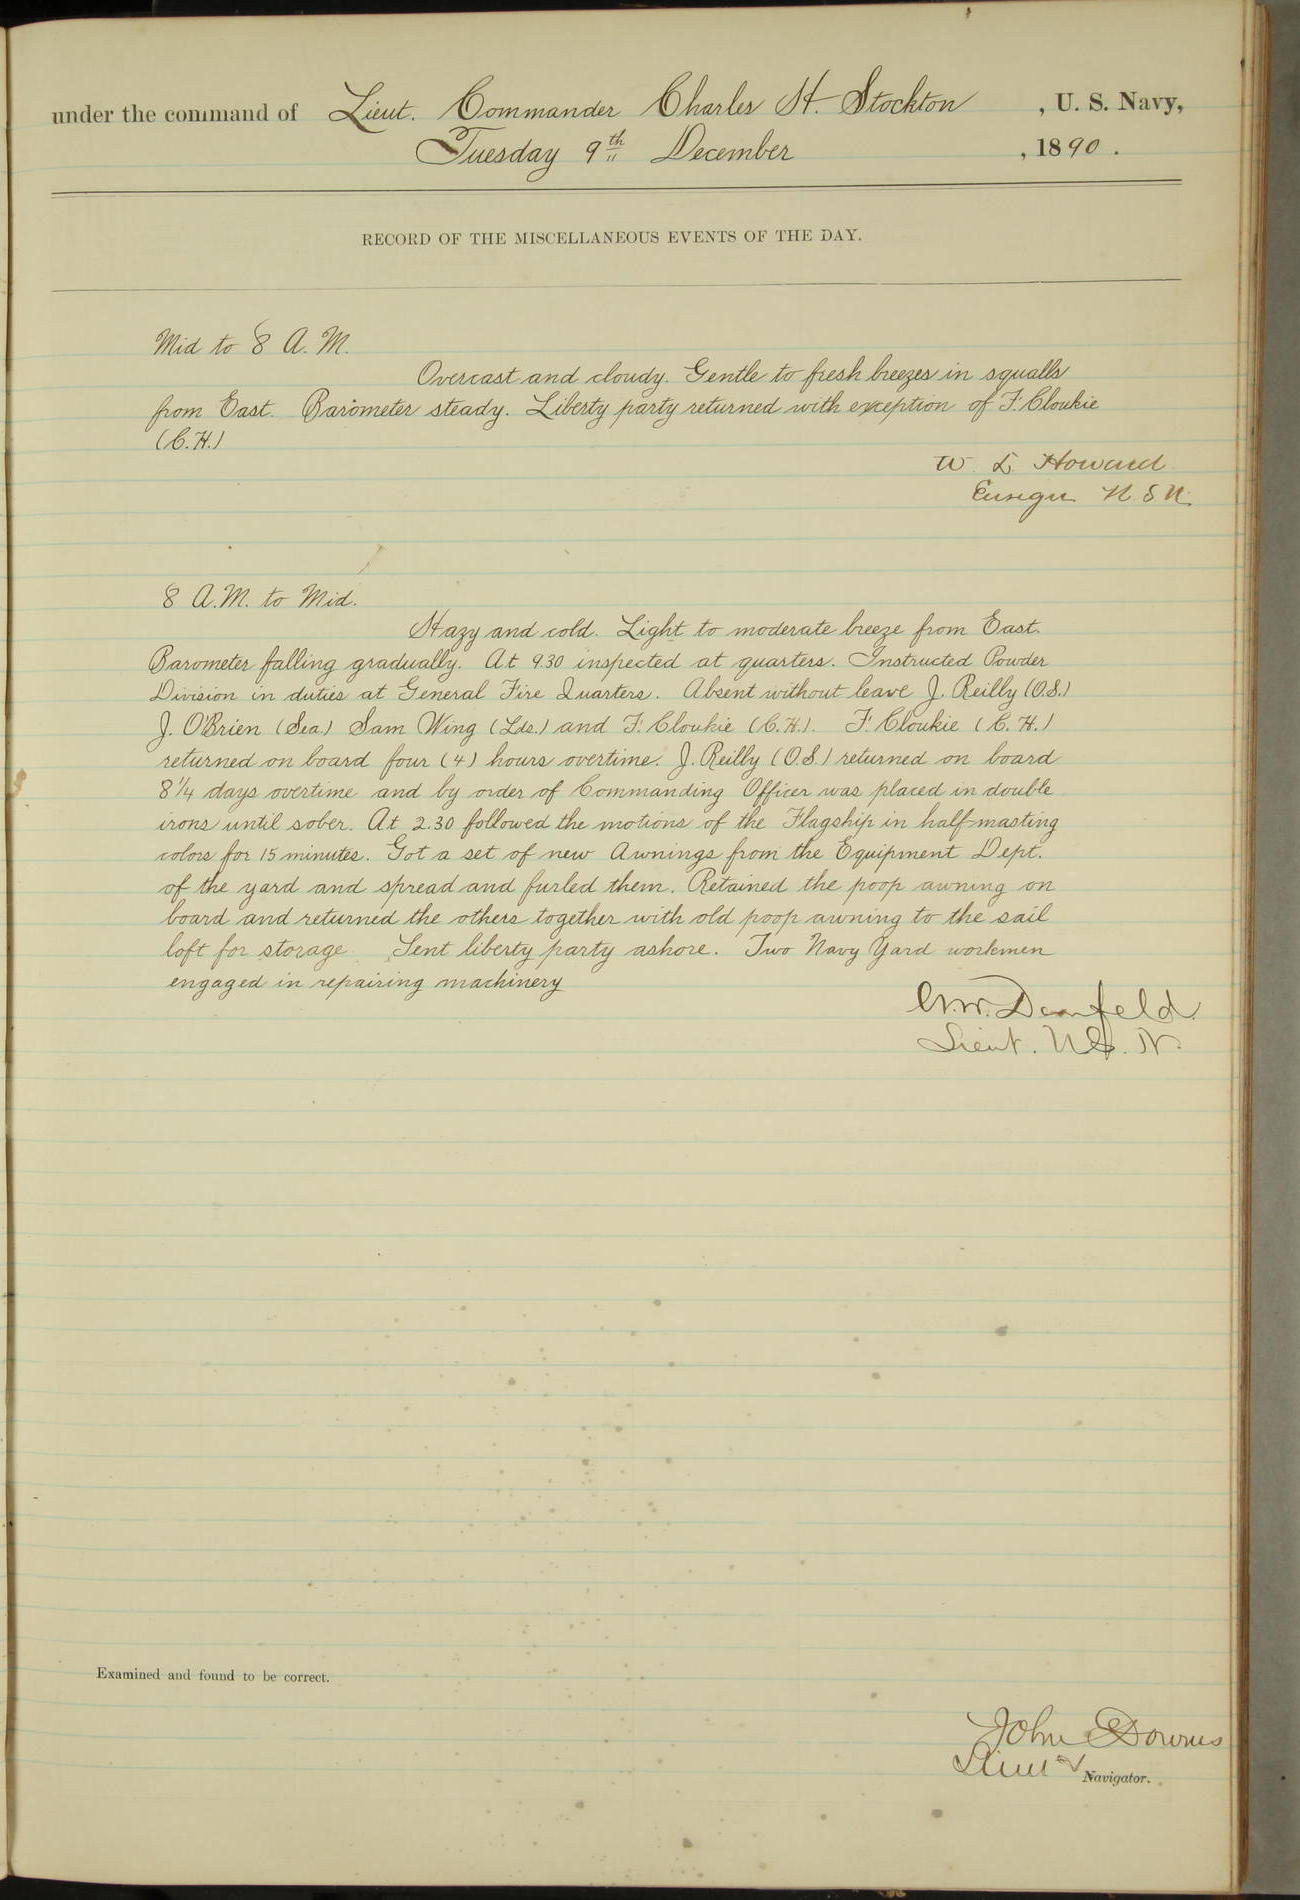 under the command of Lieut. Commander Charles H. Stockton , U. S. Navy,
Tuesday 9th December , 1890 .
RECORD OF THE MISCELLANEOUS EVENTS OF THE DAY.
Mid to 8 A. M.
Overcast and cloudy. Gentle to fresh breezes in squalls
from East. Barometer steady. Liberty party returned with exception of F. Cloukie
(C.H.)
W. L. Howard
Ensign U.S.N.
8 A.M. to Mid.
Hazy and cold. Light to moderate breeze from East.
Barometer falling gradually. At 9.30 inspected at quarters. Instructed Powder
Division in duties at General Fire Quarters. Absent without leave J. Reilly (O.S.)
J. O'Brien (Sea.) Sam Wing (Lds.) and F. Cloukie (C.H.). F. Cloukie (C. H.)
returned on board four (4) hours overtime. J. Reilly (O.S.) returned on board
8 1/4 days overtime and by order of Commanding Officer was placed in double
irons until sober. At 2.30 followed the motions of the Flagship in half-masting
colors for 15 minutes. Got a set of new Awnings from the Equipment Dept.
of the yard and spread and furled them. Retained the poop awning on
board and returned the others together with old poop awning to the sail
loft for storage. Sent liberty party ashore. Two Navy Yard workmen
engaged in repairing machinery
Lieut. U.S. N.
Examined and found to be correct.
John Downes
Lieut
Navigator.